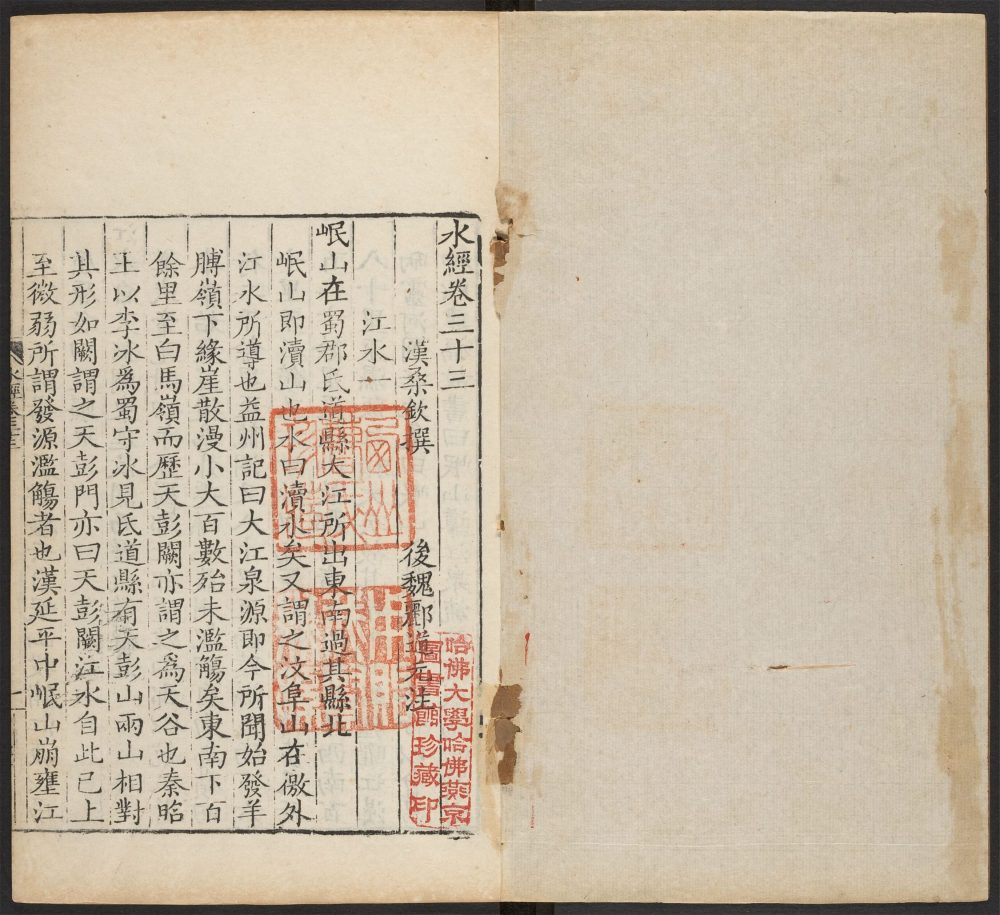 水經卷三十三
漢桑欽撰 後魏酈道元注
江水一
岷山在蜀郡氐道縣大江所出東南過其縣北
岷山即瀆山也水曰瀆水矣又謂之汶阜山在徼外
江水所導也益州記曰大江泉源即今所聞始發羊
膊嶺下緣崖散漫小大百數殆未濫觴矣東南下百
餘里至白馬嶺而歷天彭闕亦謂之爲天谷也秦昭
王以李冰爲蜀守冰見氐道縣有天彭山兩山相對
其形如闕謂之天彭門亦曰天彭闕江水自此已上
至微弱所謂發源濫觴者也漢延平中岷山崩壅江
水經卷三十三
哈佛大學哈佛燕京
圖書館珍藏印